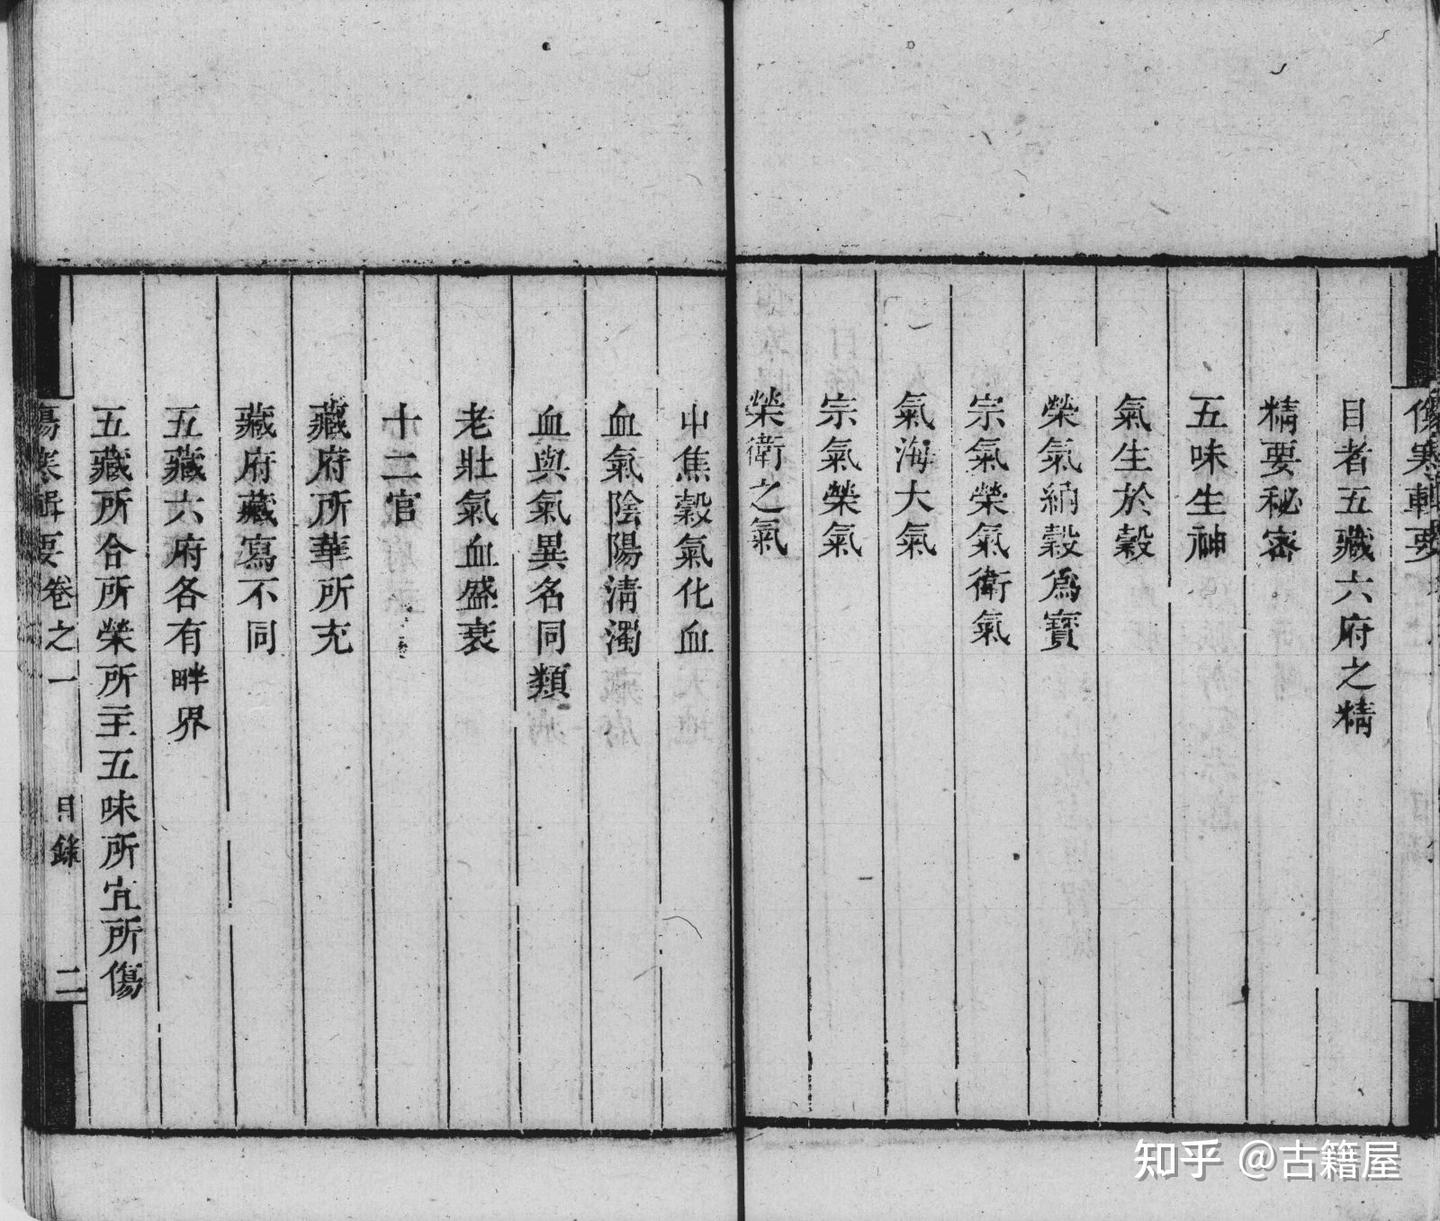 傷寒輯要
目者五藏六府之精
精要秘密
五味生神
氣生於穀
榮氣納穀爲寶
宗氣榮氣衛氣
氣海大氣
宗氣榮氣
榮衛之氣
中焦穀氣化血
血氣陰陽清濁
血與氣異名同類
老壯氣血盛衰
十二官
藏府所華所充
藏府藏寫不同
五藏六府各有畔界
五藏所合所榮所主五味所宜所傷
傷寒輯要卷之一 目錄 二
知乎 @古籍屋